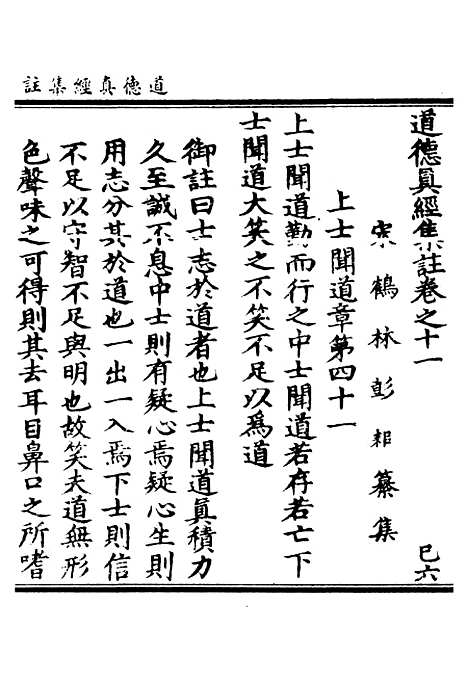 道德真經集註
道德真經集註卷之十一
已六
宋鶴林彭耜纂集
上士聞道章第四十一
上士聞道勤而行之中士聞道若存若亡下
士聞道大笑之不笑不足以爲道
御註曰士志於道者也上士聞道真積力
久至誠不息中士則有疑心焉疑心生則
用志分其於道也一出一入焉下士則信
不足以守智不足與明也故笑夫道無形
色聲味之可得則其去耳目鼻口之所嗜